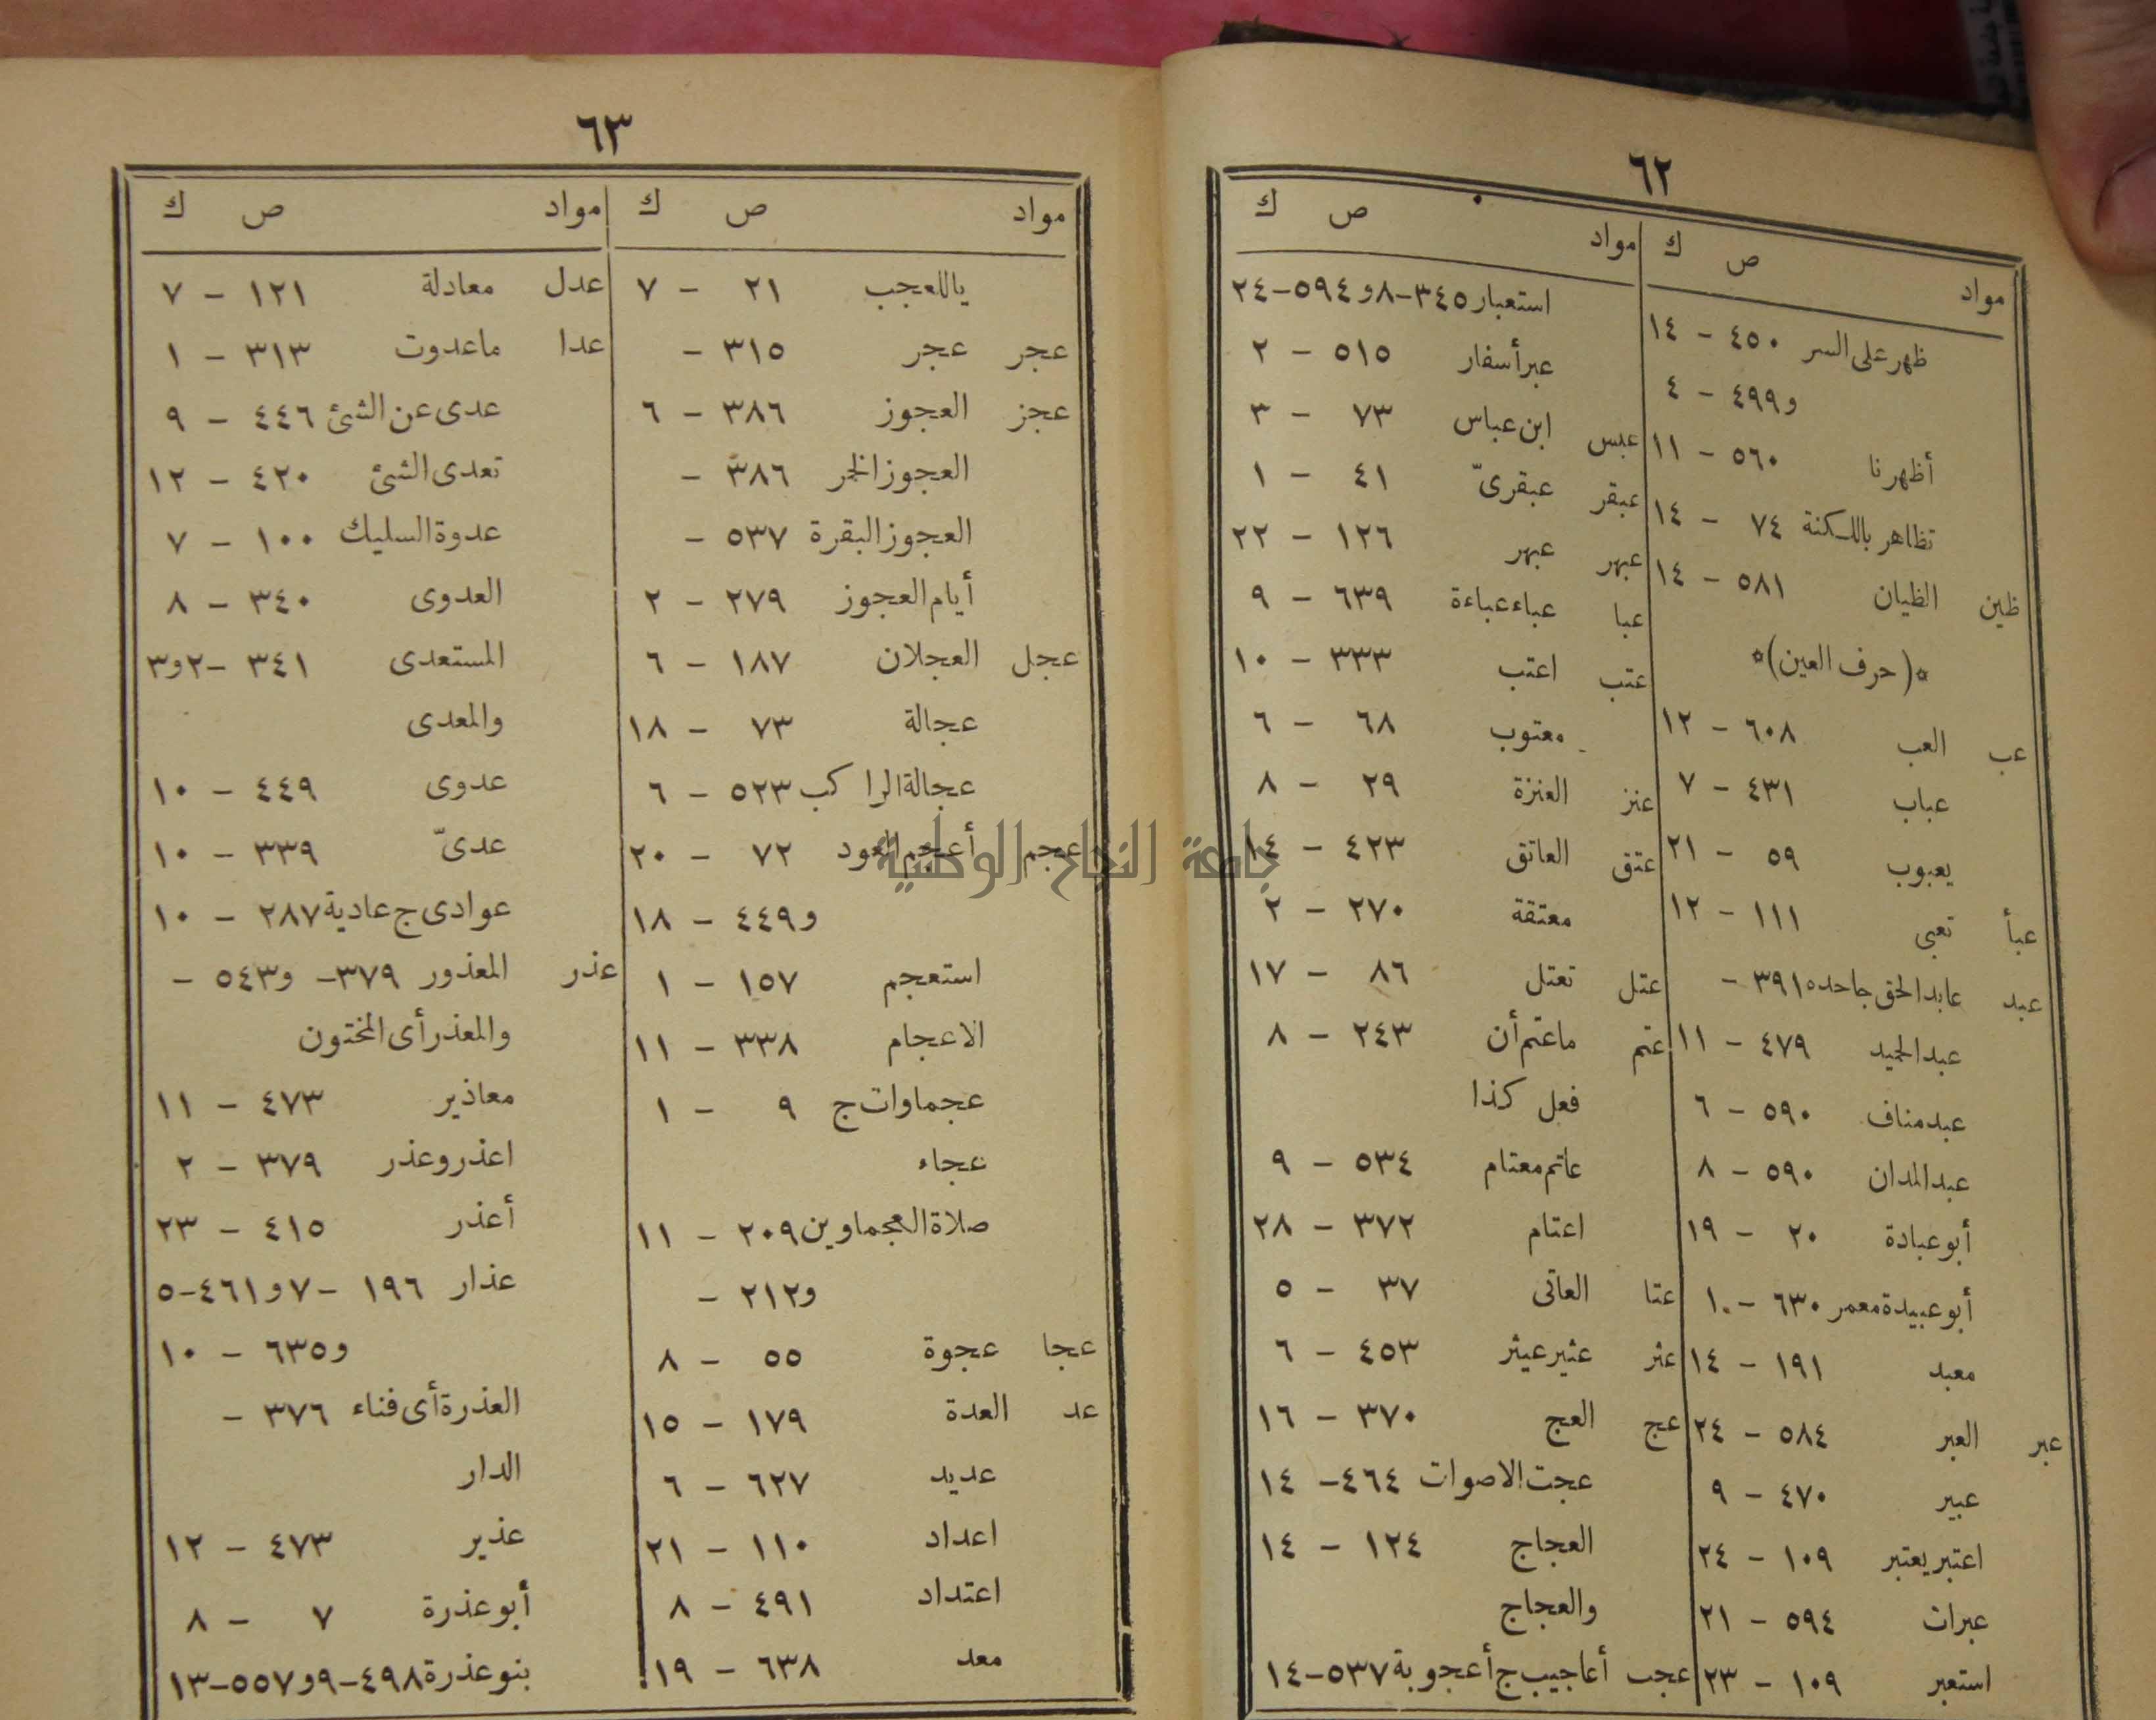 ٦٢
مواد ص ك
ظهر على السر ٤٥٠ - ١٤
و٤٩٩ - ٤
أظهرنا ٥٦٠ - ١١
تظاهر باللكنة ٧٤ - ١٤
ظين الظيان ٥٨١ - ١٤
*(حرف العين)*
عب العب ٦٠٨ - ١٢
عباب ٤٣١ - ٧
يعبوب ٥٩ - ٢١
عبأ تعبى ١١١ - ١٢
عبد عابد الحق جاحده ٣٩١ -
عبد الحميد ٤٧٩ - ١١
عبد مناف ٥٩٠ - ٦
عبد المدان ٥٩٠ - ٨
أبو عبادة ٢٠ - ١٩
أبو عبيدة معمر ٦٣٠ - ١٠
معبد ١٩١ - ١٤
عبر العبر ٥٨٤ - ٢٤
عبير ٤٧٠ - ٩
اعتبر يعتبر ١٠٩ - ٢٤
عبرات ٥٩٤ - ٢١
استعبر ١٠٩ - ٢٣
مواد ص ك
استعبار ٣٤٥-٨ و٥٩٤-٢٤
عبر أسفار ٥١٥ - ٢
عبس ابن عباس ٧٣ - ٣
عبقر عبقرىّ ٤١ - ١
عبهر عبهر ١٢٦ - ٢٢
عبا عباء عباءة ٦٣٩ - ٩
عتب اعتب ٣٣٣ - ١٠
معتوب ٦٨ - ٦
عنز العنزة ٢٩ - ٨
عتق العاتق ٤٢٣ - ١٤
معتقة ٢٧٠ - ٢
عتل تعتل ٨٦ - ١٧
عتم ما عتم أن ٢٤٣ - ٨
فعل كذا
عاتم معتام ٥٣٤ - ٩
اعتام ٣٧٢ - ٢٨
عتا العاتى ٣٧ - ٥
عثر عثير عيثر ٤٥٣ - ٦
عج العج ٣٧٠ - ١٦
عجت الاصوات ٤٦٤ - ١٤
العجاج ١٢٤ - ١٤
والعجاج
عجب أعاجيب ج أعجوبة ٥٣٧-١٤
٦٣
مواد ص ك
ياللعجب ٢١ - ٧
عجر عجر ٣١٥ -
عجز العجوز ٣٨٦ - ٦
العجوز الخمر ٣٨٦ -
العجوز البقرة ٥٣٧ -
أيام العجوز ٢٧٩ - ٢
عجل العجلان ١٨٧ - ٦
عجالة ٧٣ - ١٨
عجالة الراكب ٥٢٣ - ٦
عجم أعجم العود ٧٢ - ٢٠
و٤٤٩ - ١٨
استعجم ١٥٧ - ١
الاعجام ٣٣٨ - ١١
عجماوات ج ٩ - ١
عجماء
صلاة العجماوين ٢٠٩ - ١١
و٢١٢ -
عجا عجوة ٥٥ - ٨
عد العدة ١٧٩ - ١٥
عديد ٦٢٧ - ٦
اعداد ١١٠ - ٢١
اعتداد ٤٩١ - ٨
معد ٦٣٨ - ١٩
مواد ص ك
عدل معادلة ١٢١ - ٧
عدا ما عدوت ٣١٣ - ١
عدى عن الشئ ٤٤٦ - ٩
تعدى الشئ ٤٢٠ - ١٢
عدوة السليك ١٠٠ - ٧
العدوى ٣٤٠ - ٨
المستعدى ٣٤١ - ٢و٣
والمعدى
عدوى ٤٤٩ - ١٠
عدىّ ٣٣٩ - ١٠
عوادى ج عادية ٢٨٧ - ١٠
عذر المعذور ٣٧٩- و٥٤٣ -
والمعذر أى المختون
معاذير ٤٧٣ - ١١
اعذر وعذر ٣٧٩ - ٢
أعذر ٤١٥ - ٢٣
عذار ١٩٦ - ٧ و٤٦١-٥
و٦٣٥ - ١٠
العذرة أى فناء ٣٧٦ -
الدار
عذير ٤٧٣ - ١٢
أبو عذرة ٧ - ٨
بنو عذرة ٤٩٨-٩ و٥٥٧-١٣
جامعة النجاح الوطنية